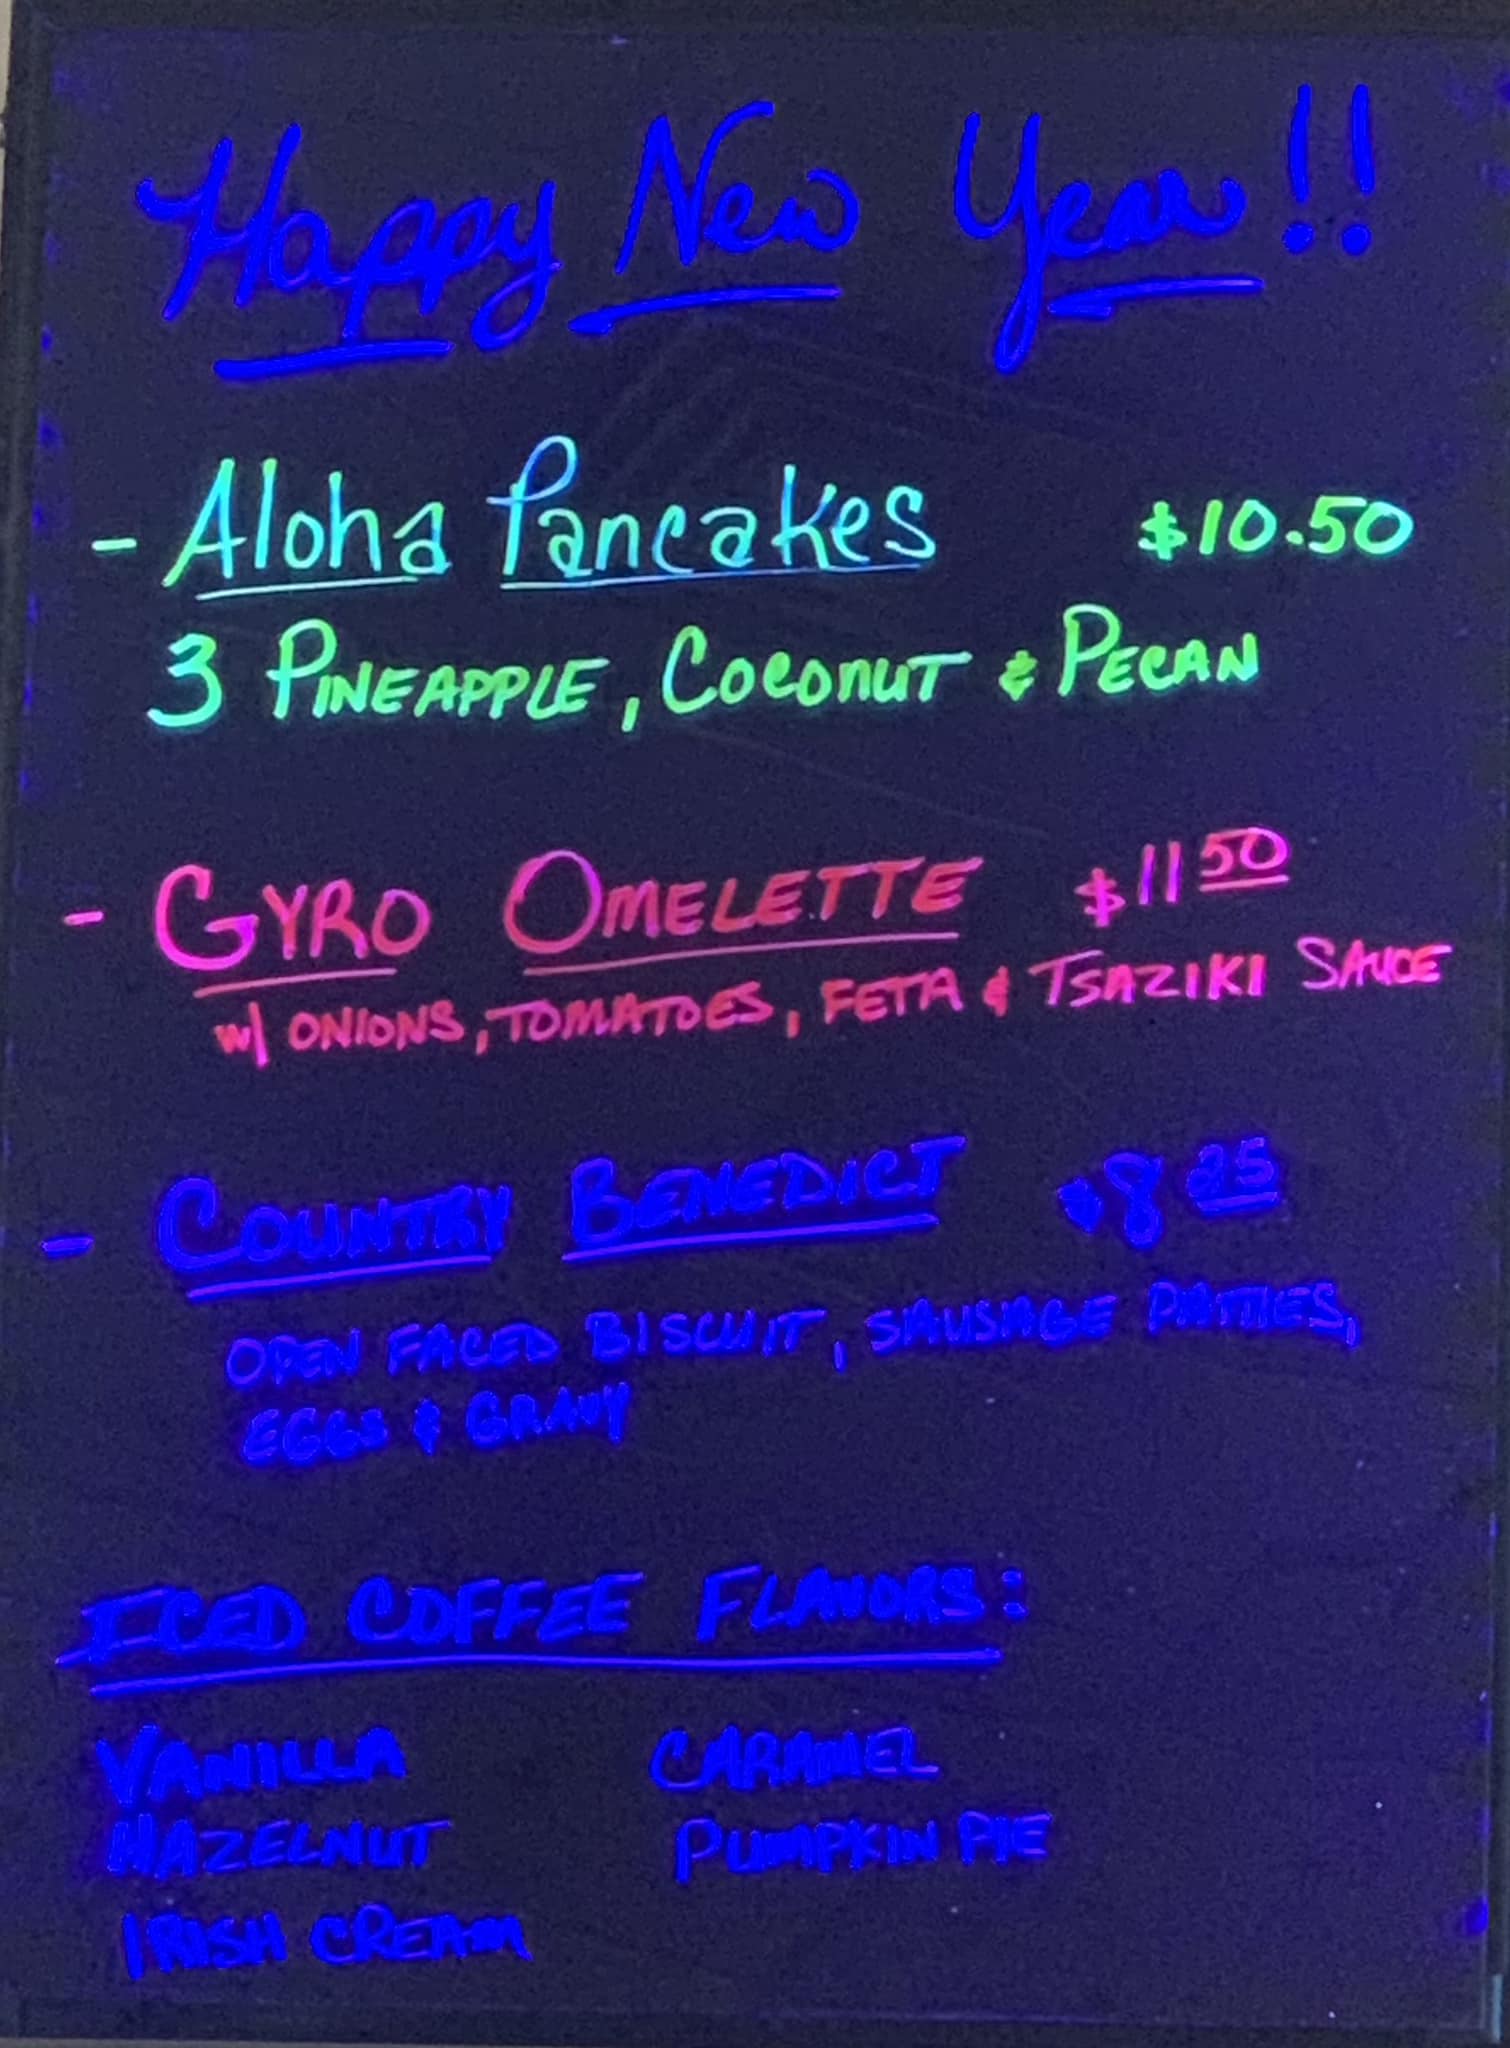 Happy New Year!!
- Aloha Pancakes $10.50
3 PINEAPPLE, COCONUT & PECAN
- GYRO OMELETTE $11 50
w/ ONIONS, TOMATOES, FETA & TSAZIKI SAUCE
- COUNTRY BENEDICT $8 25
OPEN FACED BISCUIT, SAUSAGE PATTIES,
EGGS & GRAVY
ICED COFFEE FLAVORS:
VANILLA CARAMEL
HAZELNUT PUMPKIN PIE
IRISH CREAM